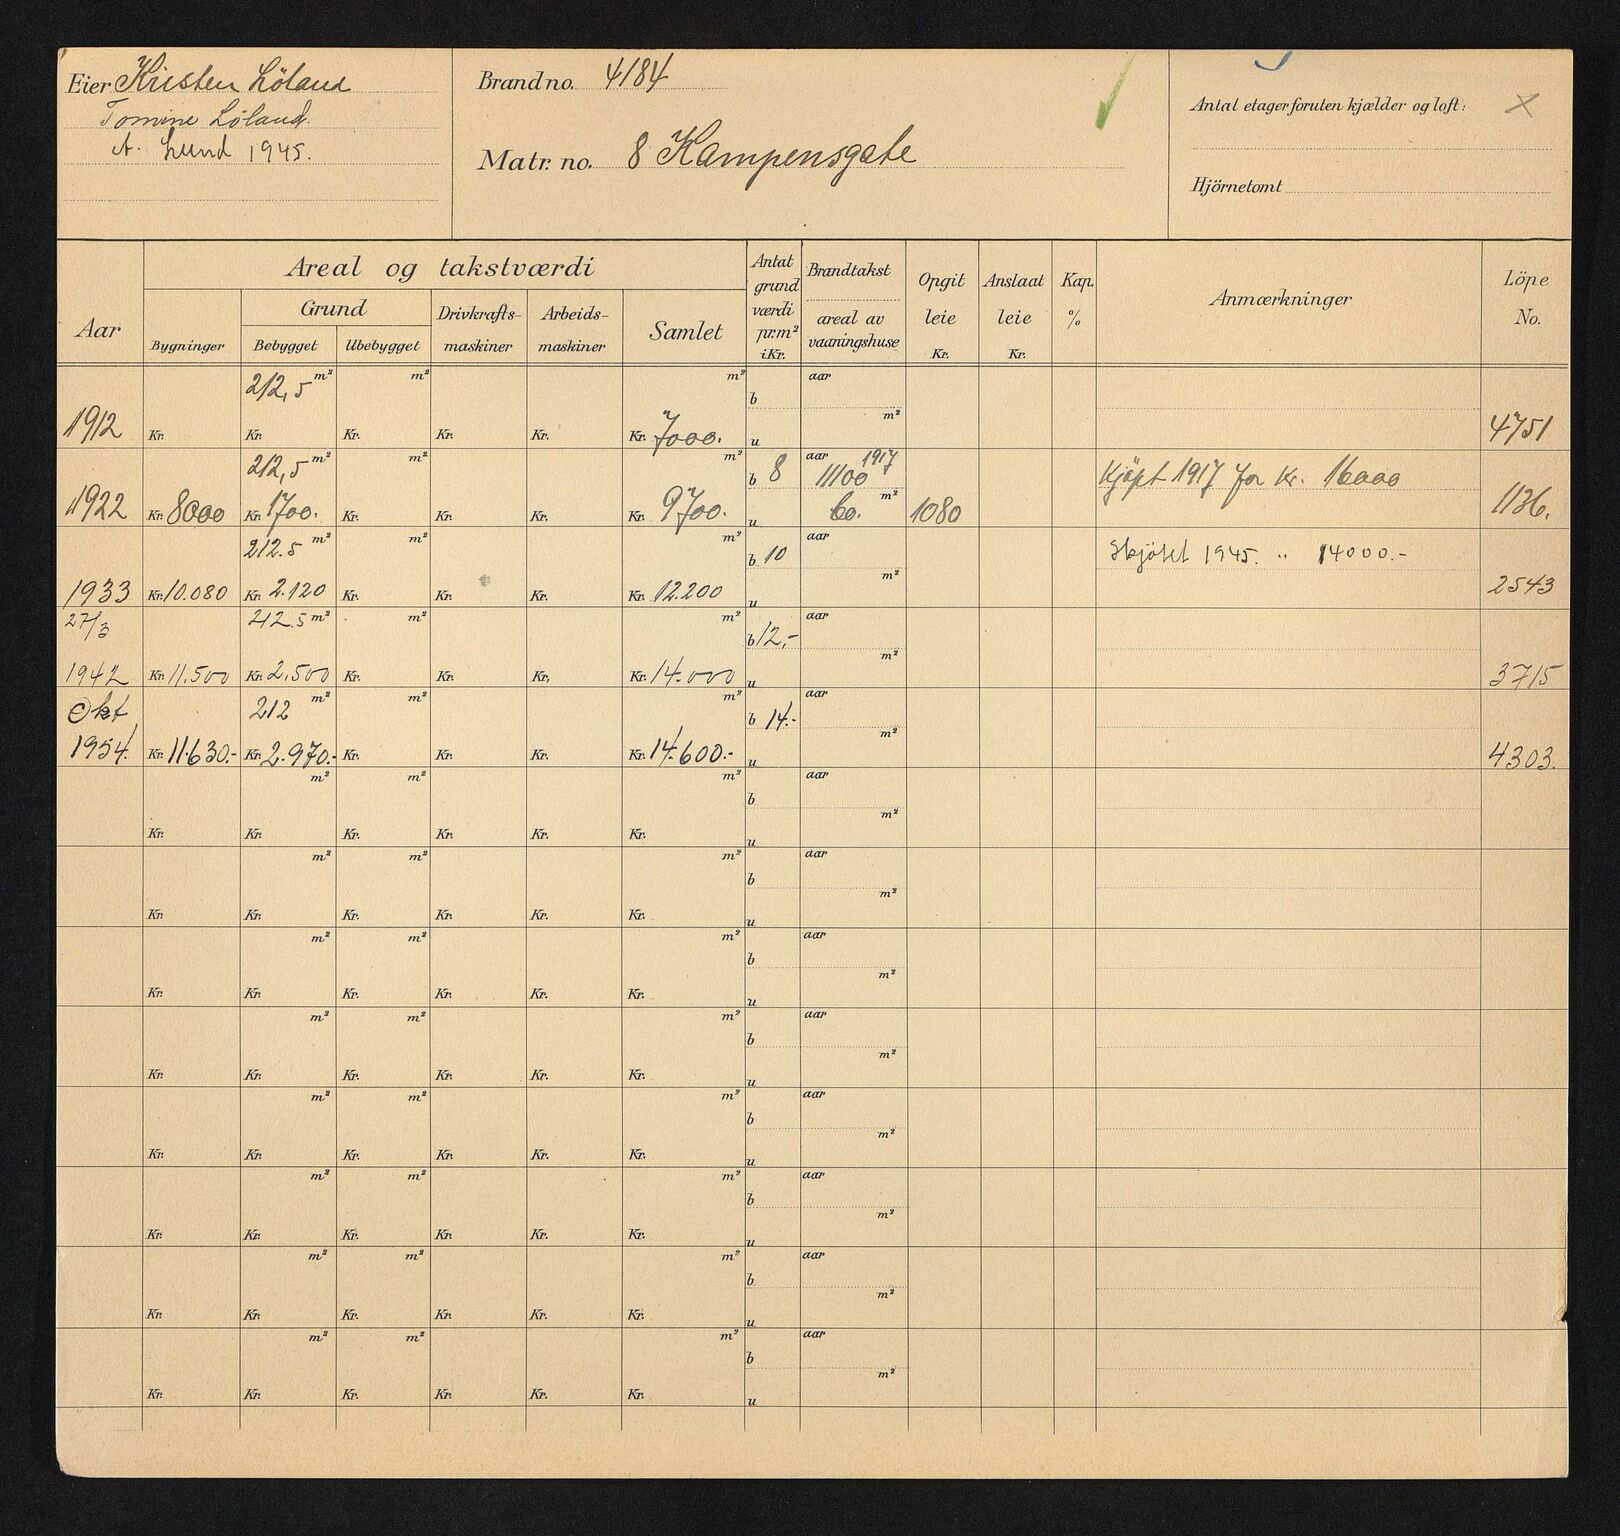 Eier Kristen Löland
Tomine Löland.
A. Lund 1945.
Brandno. 4184
Matr. no. 8 Kampensgate
Antal etager foruten kjælder og loft: X
Hjörnetomt
Aar
Areal og takstværdi
Bygninger
Grund
Bebygget Ubebygget
Drivkrafts-maskiner
Arbeids-maskiner
Samlet
Antat grund værdi pr.m² i Kr.
Brandtakst
areal av vaaningshuse
Opgit leie Kr.
Anslaat leie Kr.
Kap. %
Anmærkninger
Löpe No.
212,5 m² m² m² b aar
1912 Kr. Kr. Kr. Kr. Kr. Kr. 7000. u m² 4751
212,5 m² m² m² b 8 aar 1917 11100 Kjöpt 1917 for Kr. 16000
1922 Kr. 8000 Kr. 1700. Kr. Kr. Kr. Kr. 9700. u 60. m² 1080 1136.
212.5 m² m² m² b 10 aar Skjötet 1945. " 14000.-
1933 Kr. 10.080 Kr. 2.120 Kr. Kr. Kr. Kr. 12.200 u m² 2543
27/3 212.5 m² m² m² b 12,- aar
1942 Kr. 11.500 Kr. 2.500 Kr. Kr. Kr. Kr. 14.000 u m² 3715
Okt 212 m² m² m² b 14.- aar
1954. Kr. 11.630.- Kr. 2.970.- Kr. Kr. Kr. Kr. 14.600.- u m² 4303.
m² m² m² b aar
Kr. Kr. Kr. Kr. Kr. Kr. u m²
m² m² m² b aar
Kr. Kr. Kr. Kr. Kr. Kr. u m²
m² m² m² b aar
Kr. Kr. Kr. Kr. Kr. Kr. u m²
m² m² m² b aar
Kr. Kr. Kr. Kr. Kr. Kr. u m²
m² m² m² b aar
Kr. Kr. Kr. Kr. Kr. Kr. u m²
m² m² m² b aar
Kr. Kr. Kr. Kr. Kr. Kr. u m²
m² m² m² b aar
Kr. Kr. Kr. Kr. Kr. Kr. u m²
m² m² m² b aar
Kr. Kr. Kr. Kr. Kr. Kr. u m²